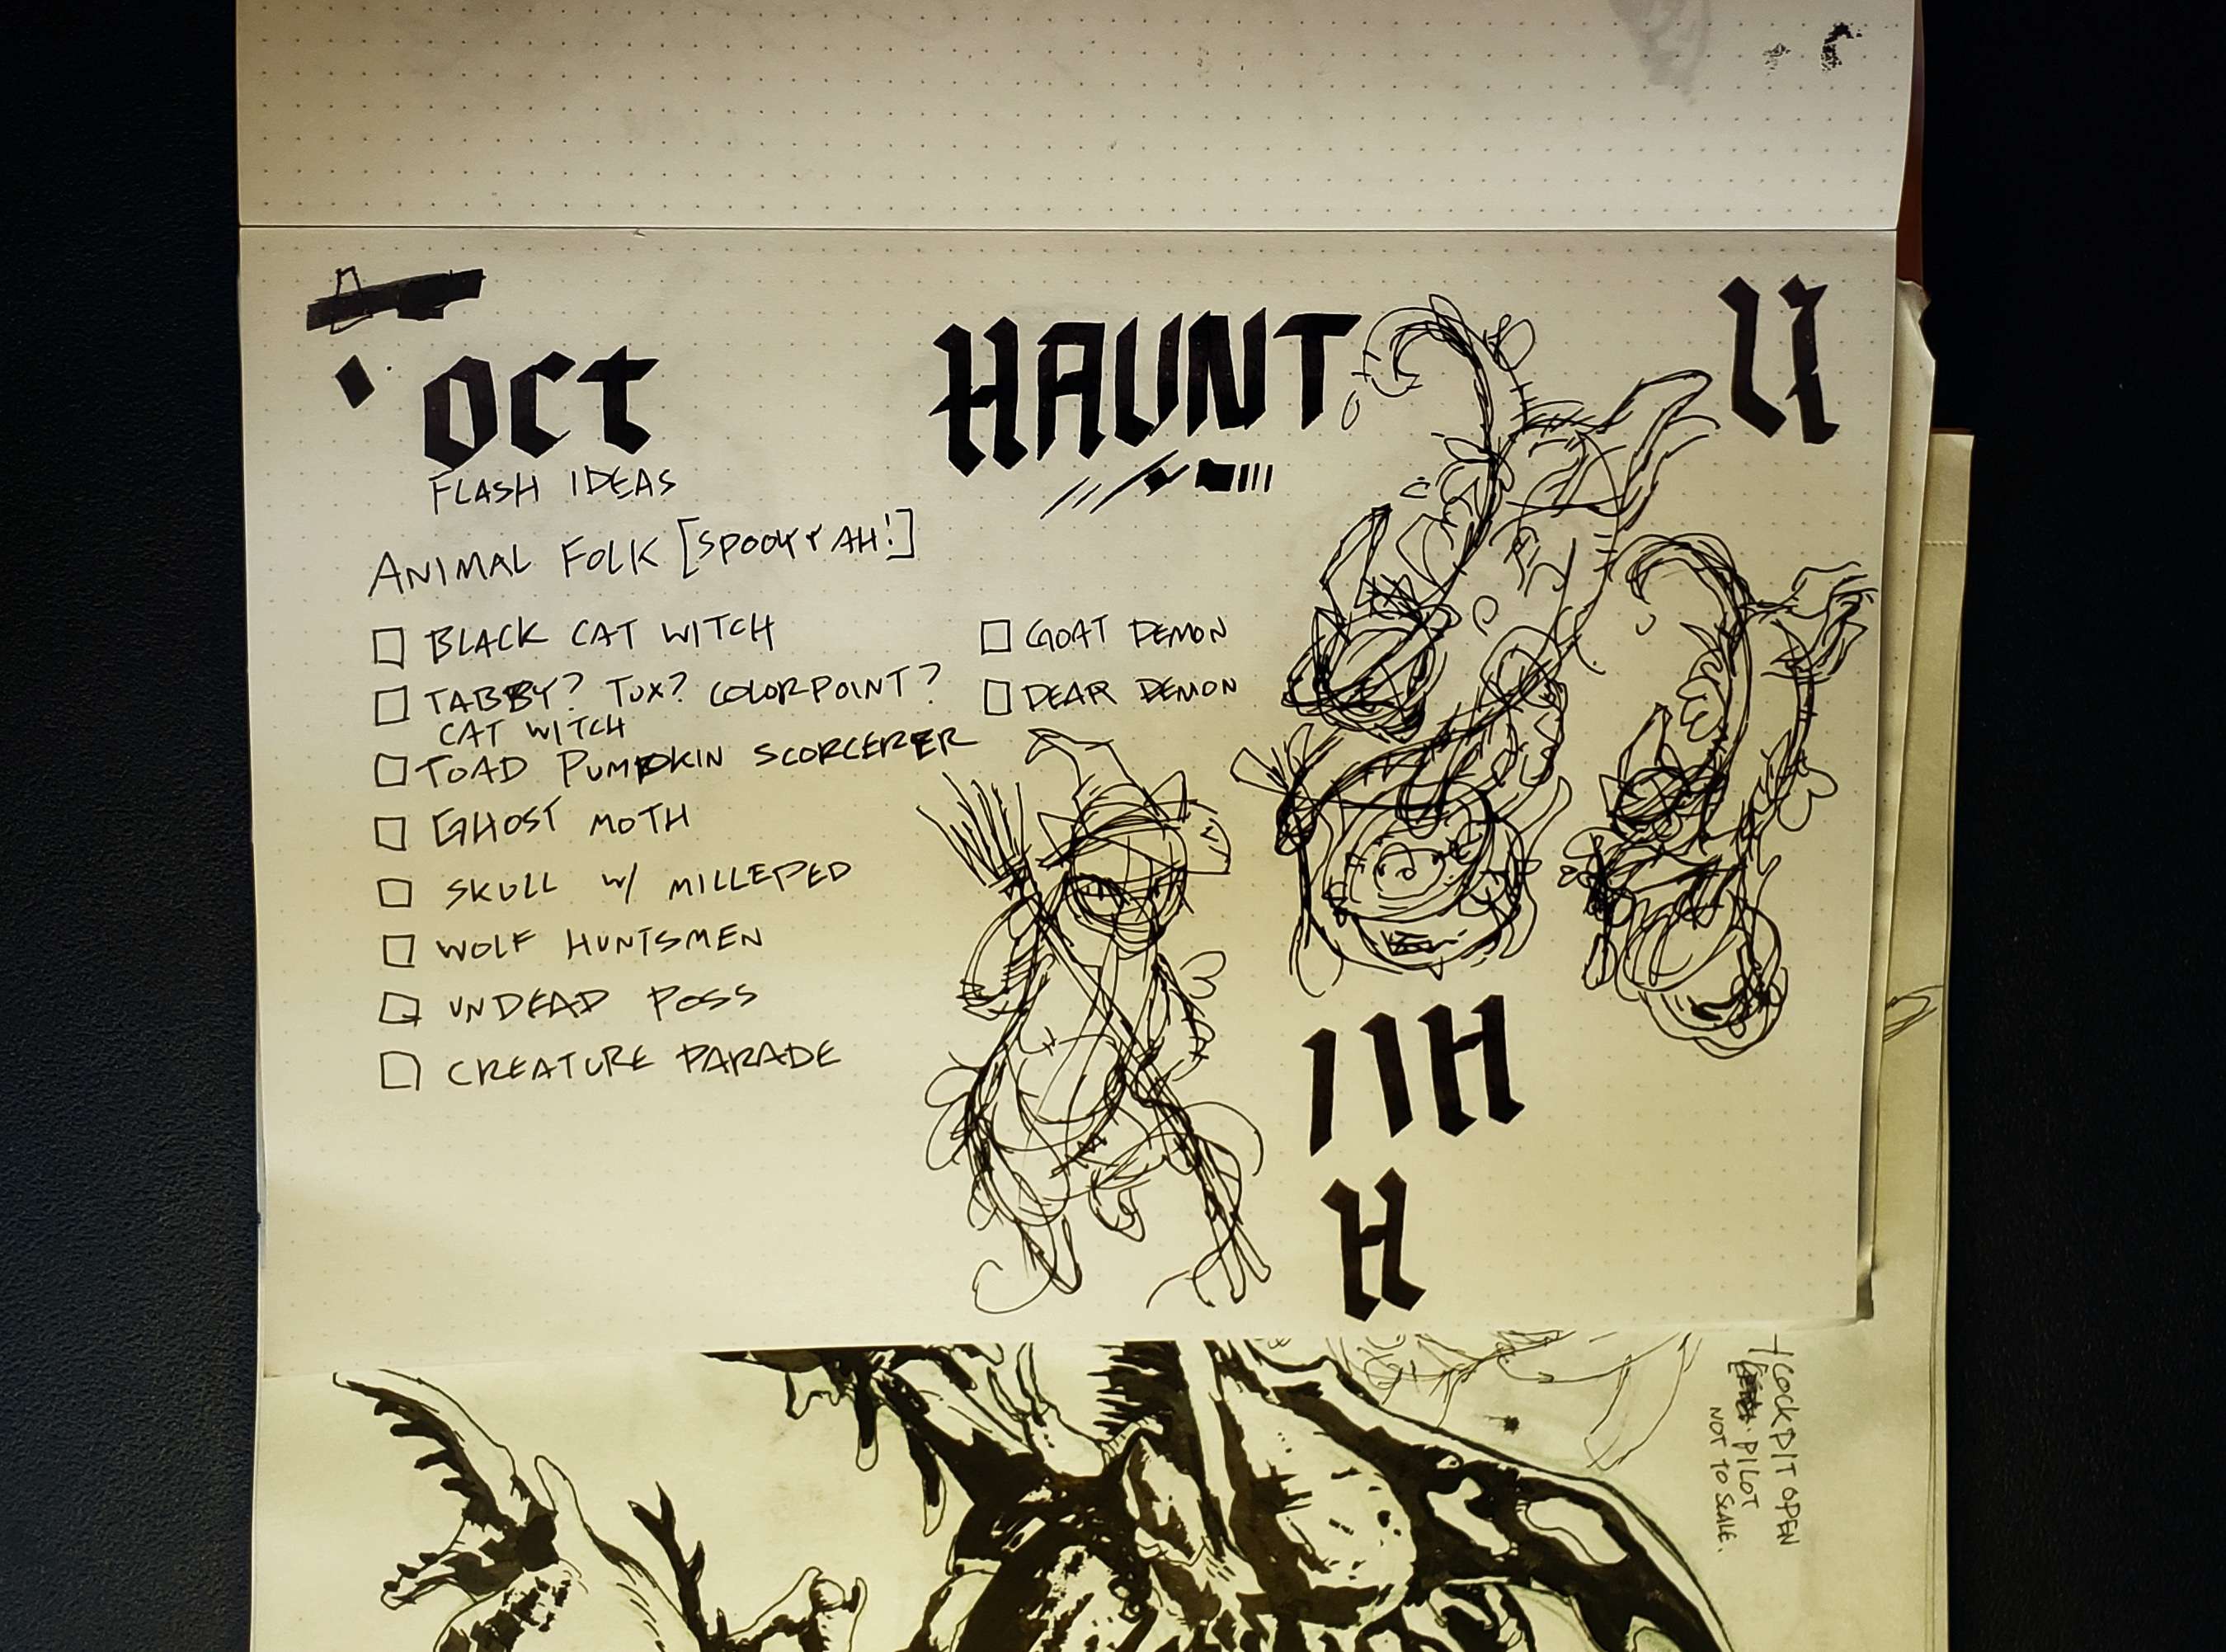 oct
FLASH IDEAS
HAUNT
U
ANIMAL FOLK [SPOOKY YAH!]
BLACK CAT WITCH
TABBY? TUX? COLORPOINT?
CAT WITCH
TOAD PUMPKIN SCORCERER
GHOST MOTH
SKULL W/ MILLEPED
WOLF HUNTSMEN
UNDEAD POSS
CREATURE PARADE
GOAT DEMON
DEAR DEMON
H
H
COCKPIT OPEN
PILOT
NOT TO SCALE.